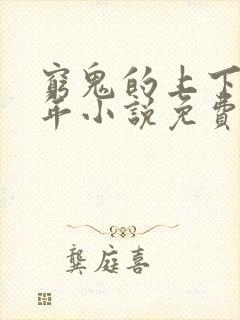 窮鬼的上下
年小說免費
龔庭喜